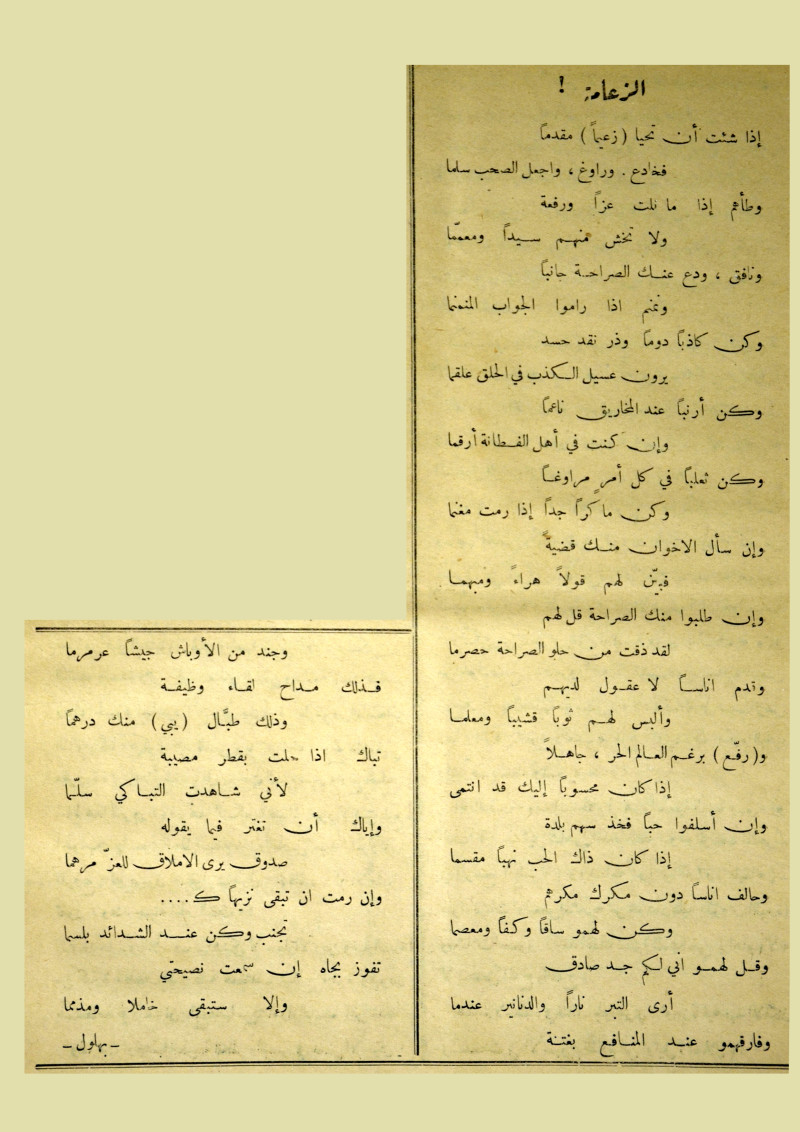 الزعامة !
إذا شئت أن تحيا (زعيماً) مقدماً
فخادع . وراوغ ، واجعل الصحب سلما
وطأهم إذا ما نلت عزاً ورفعة
ولا تخش منهم سيداً ومعمّما
ونافق ، ودع عنك الصراحة جانباً
وغنم اذا راموا الجواب المنمنما
وكن كاذباً دوماً وذر نقد حسد
يرون عسيل الكذب في الخلق علقما
وكن أرنباً عند المخاريق ناعماً
وإن كنت في أهل الفطانة أرقما
وكن ثعلباً في كل أمرٍ مراوغاً
وكن ماكراً جداً إذا رمت مغنما
وإن سأل الاخوان منك قضيةً
فبيّن لهم قولاً هراءً ومبهما
وإن طلبوا منك الصراحة قل لهم
لقد ذقت من حلو الصراحة حصرما
وقدم اناساً لا عقول لديهم
وألبس لهم ثوباً قشيباً ومعلما
و(رفّع) برغم العالم الحر ، جاهلاً
إذا كان محسوباً إليك قد انتمى
وإن أسلفوا حباً فخذ سهم بلدة
إذا كان ذاك الحب نهباً مقسما
وحالف اناساً دون مكرك مكرهم
وكن لهمو ساقاً وكفاً ومعصما
وقل لهمو اني لكم جد صادق
أرى التبر ناراً والدنانير عندما
وفارقهمو عند المنافع بغتة
وجند من الأوباش جيشاً عرمرما
فذلك مداح لقاء وظيفة
وذلك طبَّال (يبي) منك درهماً
تباك اذا حلت بقطر مصيبة
لأني شاهدت التباكي سلّما
وإياك أن تغتر فيما يقوله
صدوق يرى الاملاق للعزّ مرهما
وإن رمت ان تبقى نزيهاً ك....
تجنب وكن عند الشدائد بلسما
تفوز بجاه إن سمعت نصيحتي
وإلا ستبقى خاملا ومذمما
- بهلول -